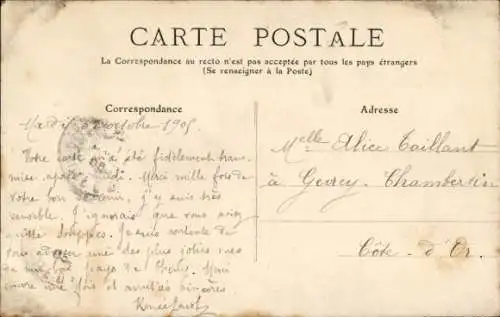 CARTE POSTALE
La Correspondance au recto n'est pas acceptée par tous les pays étrangers
(Se renseigner à la Poste)
Correspondance
Adresse
Mardi octobre 1905
Votre carte m'a été fidèlement trans-
mise, après midi. Merci mille fois de
votre bon souvenir, j'y suis très
sensible. J'ignorais que vous aviez
quitté Je suis contente de
vous adresser une des plus jolies vues
de mon pays de Merci
encore une fois et amitiés sincères.
Renée
Melle Alice Taillant
à Gevrey-Chambertin
Côte-d'Or.